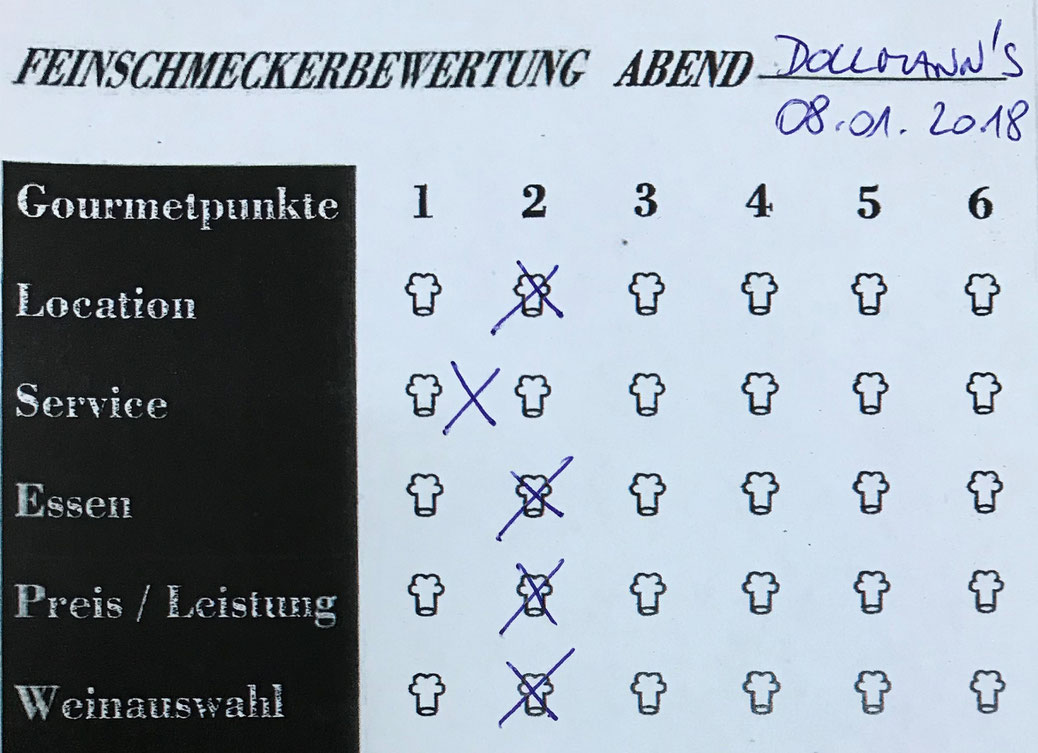 FEINSCHMECKERBEWERTUNG ABEND DOLLMANN'S
08.01.2018
Gourmetpunkte 1 2 3 4 5 6
Location
Service
Essen
Preis / Leistung
Weinauswahl